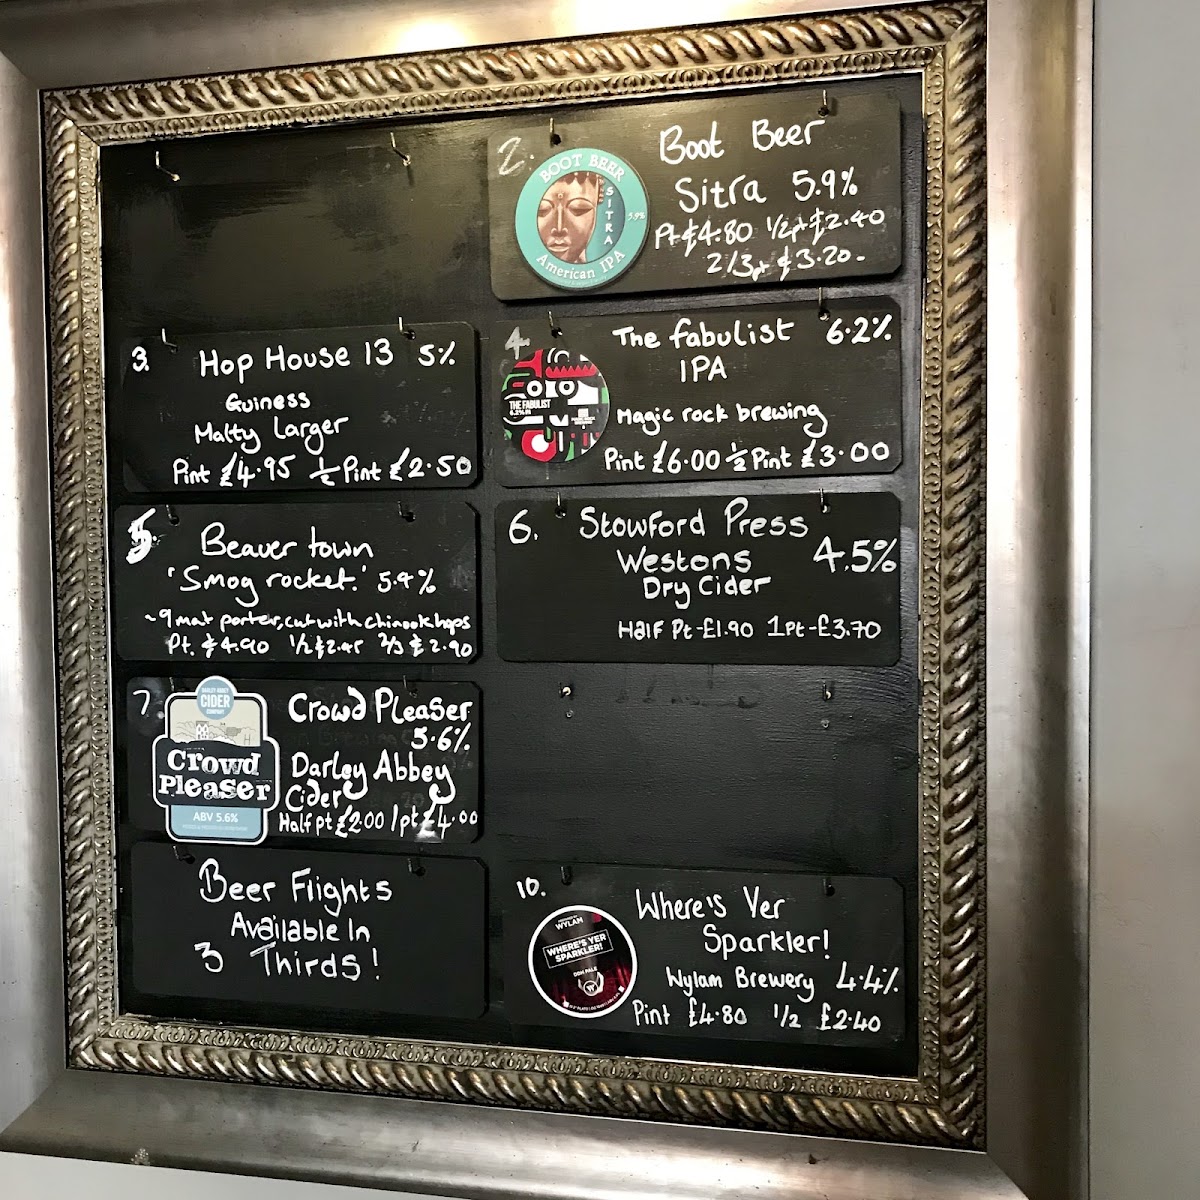 2.
BOOT BEER
SITRA
5.9%
American IPA
Boot Beer
Sitra 5.9%
Pt £4.80 1/2pt £2.40
2/3pt £3.20-
3.
Hop House 13 5%
Guiness
Malty Larger
Pint £4.95 ½ Pint £2.50
4.
THE FABULIST
6.2%
The fabulist 6.2%
IPA
Magic rock brewing
Pint £6.00 ½ Pint £3.00
5.
Beaver town
'Smog rocket.' 5.4%
~9 malt porter, cut with chinook hops
Pt. £4.90 1/2 £2.45 2/3 £2.90
6.
Stowford Press
Westons 4.5%
Dry Cider
Half Pt-£1.90 1Pt-£3.70
7.
DARLEY ABBEY
CIDER
COMPANY
Crowd
Pleaser
ABV 5.6%
Crowd Pleaser
5.6%
Darley Abbey
Cider
Half pt £2.00 1pt £4.00
Beer Flights
Available In
3 Thirds!
10.
WYLAM
WHERE'S YER
SPARKLER!
DDH PALE
Where's Yer
Sparkler!
Wylam Brewery 4.4%
Pint £4.80 1/2 £2.40